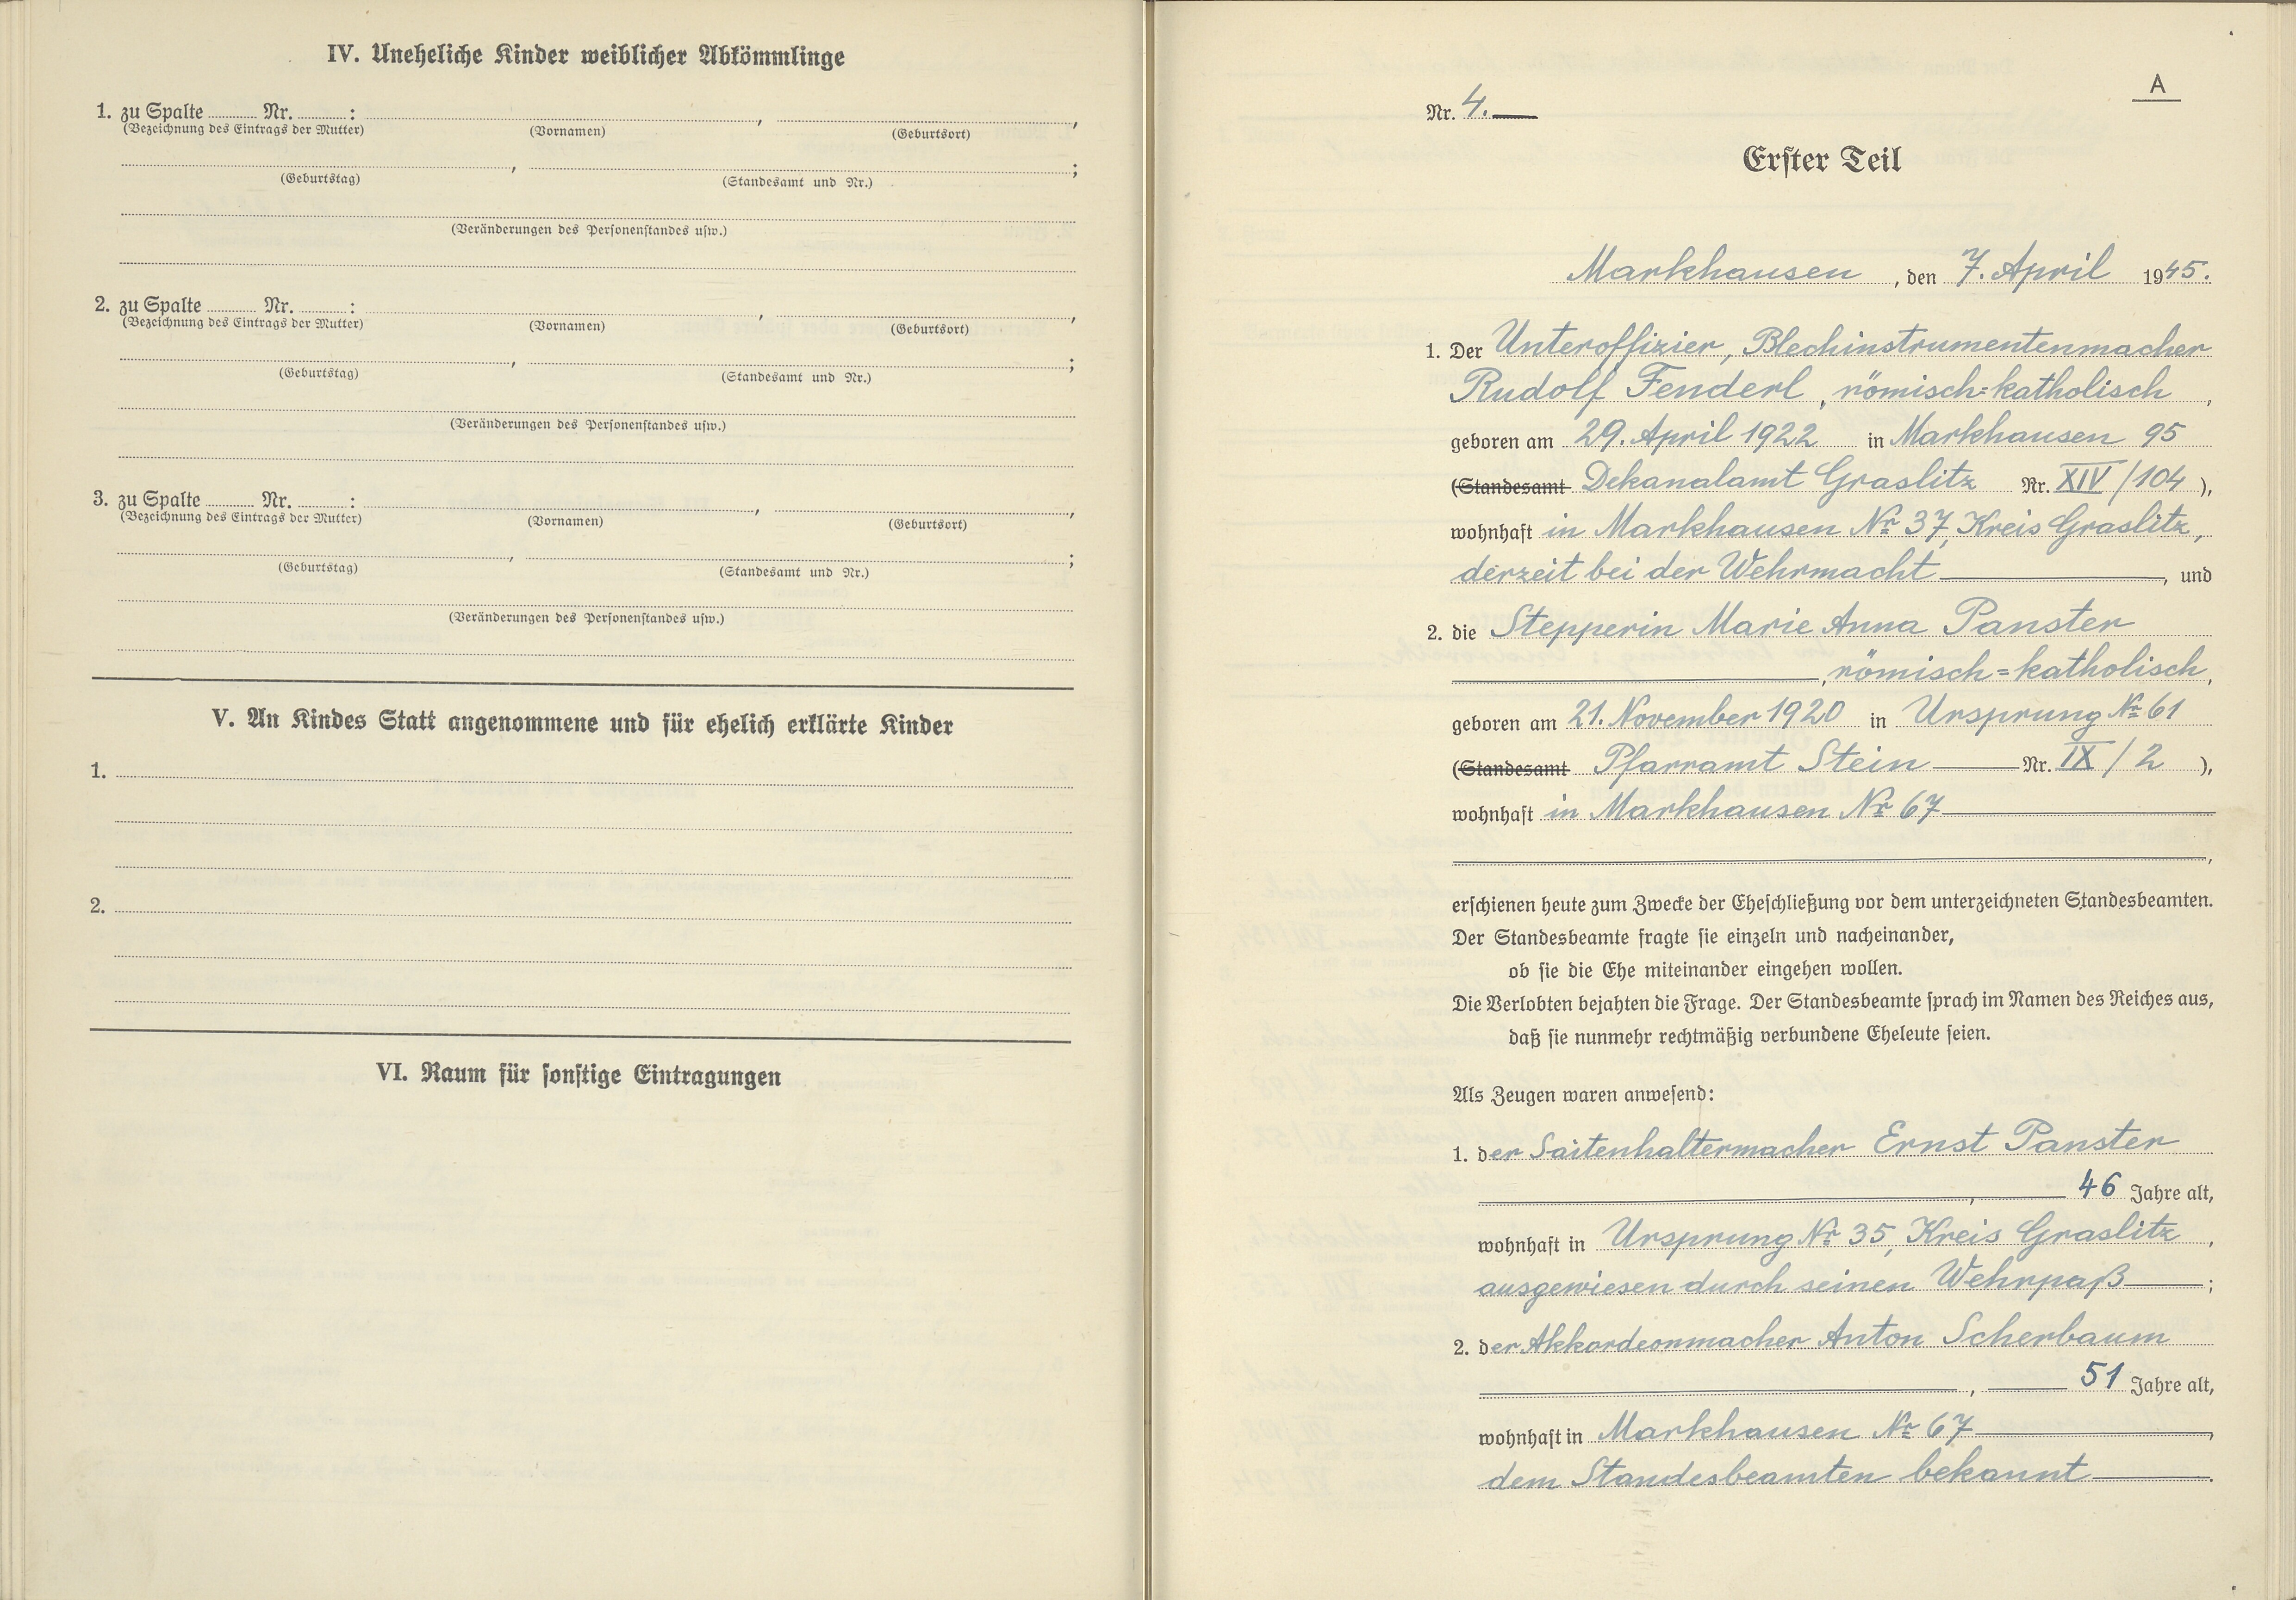 IV. Uneheliche Kinder weiblicher Abkömmlinge
1. zu Spalte ........ Nr. ........ : ........ , ........ ,
(Bezeichnung des Eintrags der Mutter) (Vornamen) (Geburtsort)
........ , ........ ;
(Geburtstag) (Standesamt und Nr.)
(Veränderungen des Personenstandes usw.)
2. zu Spalte ........ Nr. ........ : ........ , ........ ,
(Bezeichnung des Eintrags der Mutter) (Vornamen) (Geburtsort)
........ , ........ ;
(Geburtstag) (Standesamt und Nr.)
(Veränderungen des Personenstandes usw.)
3. zu Spalte ........ Nr. ........ : ........ , ........ ,
(Bezeichnung des Eintrags der Mutter) (Vornamen) (Geburtsort)
........ , ........ ;
(Geburtstag) (Standesamt und Nr.)
(Veränderungen des Personenstandes usw.)
V. An Kindes Statt angenommene und für ehelich erklärte Kinder
1.
2.
VI. Raum für sonstige Eintragungen
A
Nr. 4.
Erster Teil
Markhausen, den 7. April 1945.
1. Der Unteroffizier, Blechinstrumentenmacher
Rudolf Fenderl, römisch=katholisch,
geboren am 29. April 1922 in Markhausen 95
(Standesamt Dekanalamt Graslitz Nr. XIV/104),
wohnhaft in Markhausen Nr 37, Kreis Graslitz,
derzeit bei der Wehrmacht, und
2. die Stepperin Marie Anna Panster
, römisch=katholisch,
geboren am 21. November 1920 in Ursprung Nr 61
(Standesamt Pfarramt Stein Nr. IX/2),
wohnhaft in Markhausen Nr 67
,
erschienen heute zum Zwecke der Eheschließung vor dem unterzeichneten Standesbeamten.
Der Standesbeamte fragte sie einzeln und nacheinander,
ob sie die Ehe miteinander eingehen wollen.
Die Verlobten bejahten die Frage. Der Standesbeamte sprach im Namen des Reiches aus,
daß sie nunmehr rechtmäßig verbundene Eheleute seien.
Als Zeugen waren anwesend:
1. der Saitenhaltermacher Ernst Panster
, 46 Jahre alt,
wohnhaft in Ursprung Nr 35, Kreis Graslitz,
ausgewiesen durch seinen Wehrpaß;
2. der Akkordeonmacher Anton Scherbaum
, 51 Jahre alt,
wohnhaft in Markhausen Nr 67,
dem Standesbeamten bekannt.